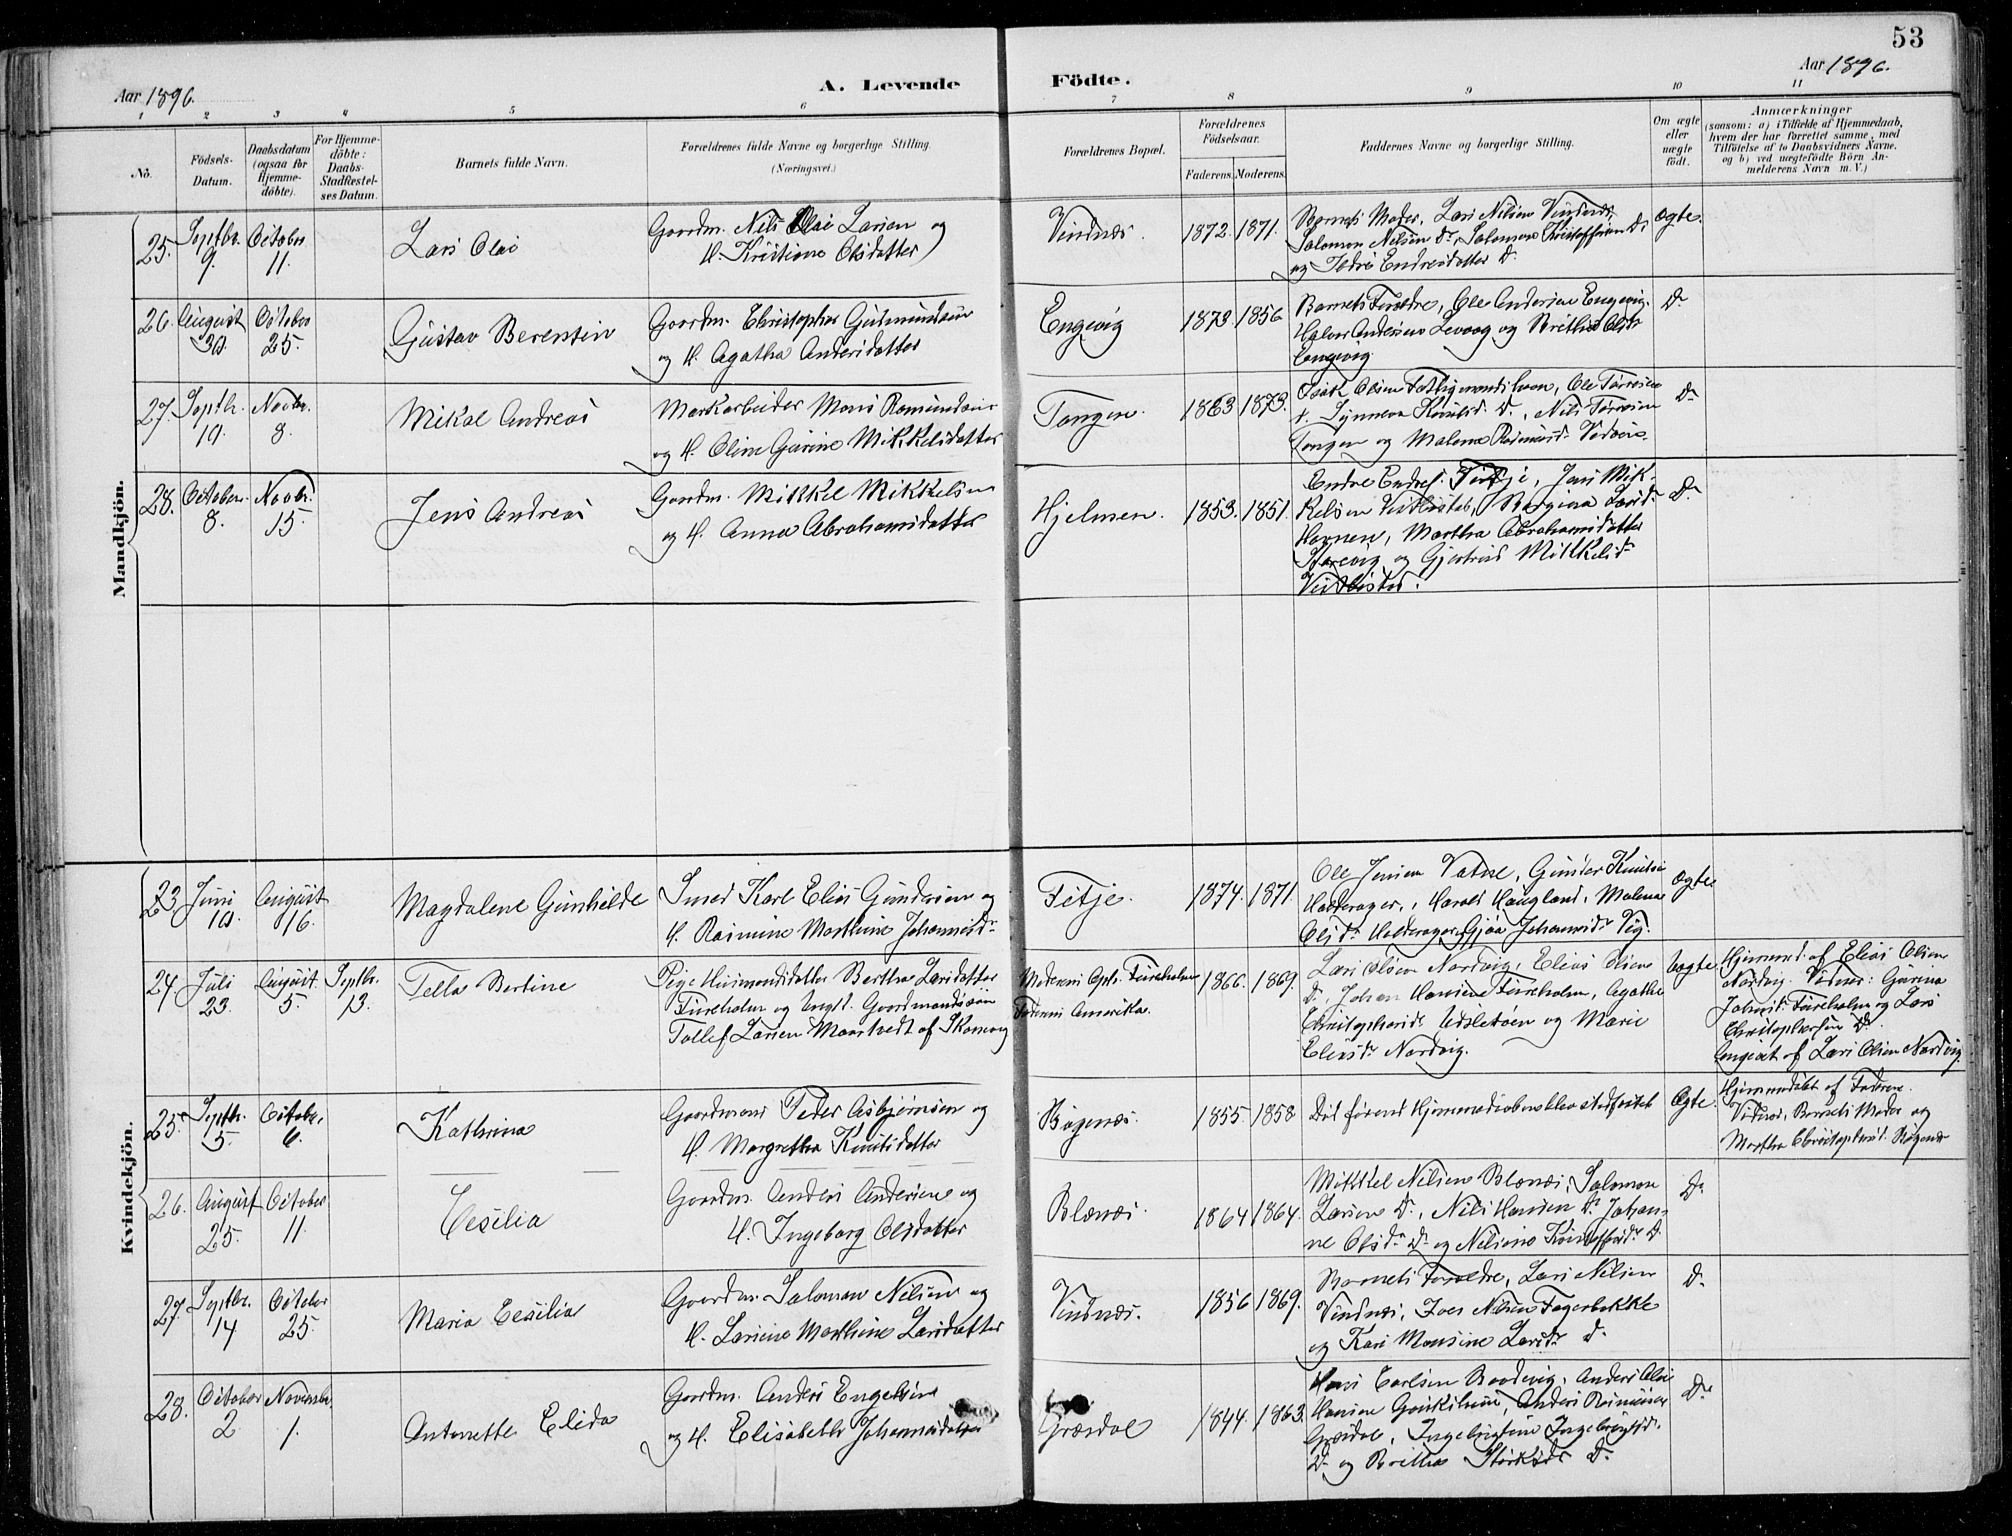 53
Aar 1896.
A. Levende
Födte.
Aar 1896.
1 2 3 4 5 6 7 8 9 10 11
No.
Födsels-Datum.
Daabsdatum (ogsaa för Hjemme-döbte).
For Hjemme-döbte: Daabs-Stadfæstel-ses Datum.
Barnets fulde Navn.
Forældrenes fulde Navne og borgerlige Stilling. (Næringsvei.)
Forældrenes Bopæl.
Forældrenes Födselsaar.
Faderens. Moderens.
Faddernes Navne og borgerlige Stilling.
Om ægte eller uægte födt.
Anmærkninger
(saasom: a) i Tilfælde af Hjemmedaab, hvem der har forrettet samme, med Tilföielse af to Daabsvidners Navne. og b) ved uægtefödte Börn An-melderens Navn m. V.)
Mandkjön.
25. Septbr. 9. October 11. Lars Olai
Gaardm. Nils Olai Larsen og
H. Kristiane Olsdatter
Vindnæs. 1872. 1871.
Barnets Moder, Lars Nilsen Vindnæs,
Salomon Nilsen Do, Salomon Kristoffersen Do
og Endresdatter Do
ægte.
26. August 30. October 25. Gustav Berentin
Gaardm. Christopher Gudmundsen
og H. Agatha Andersdatter
Engevig 1873. 1856
Barnets Forældre, Ole Andersen Engevig,
Halvor Andersen Levaag og Brithe Olsdr
Engevig.
Do
27. Septbr. 19. Novbr. 8. Mikal Andreas
Markarbeider Mons Rasmundsen
og H. Oline Gurine Mikkelsdatter
Tangen. 1863 1873.
Isak Olsen, Ole
Nils
Tangen og Malene
Do
28. October. 8. Novbr. 15. Jens Andreas
Gaardm. Mikkel Mikkelsen
og H. Anna Abrahamsdatter
Hjelmen. 1853. 1851.
Endre Endres. Fitje, Jens Mik-
kelsen Vestbøstad, Bergina Larsdr
Havnen, Martha Abrahamsdatter
Storevig og Gjertrud Mikkelsdr
Vestbøstad.
Do
Kvindekjön.
23 Juni 10. August 16. Magdalene Gunhilde
Smed Karl Elias Gundersen og
H. Rasmine Marthine Johannesdr
Fitje. 1874. 1871.
Ole Jensen Vatne, Gunder Knutsen
Halderager, Harald Haugland, Malene
Olsdr Halderager, Gjøa Johannesdr Vig.
ægte
24. Juli 23. August. 5. Septbr. 13. Tella Bertine
Pige Husmandsdatter Bertha Larsdatter
Fureholm og Ungk. Gaardmandssøn
Tollef Larsen Maartvedt af Skonevig
Moderens Opl. Fureholm
Faderens Amerika.
1866. 1869.
Lars Olsen Nordvig, Elias Olsen
Do, Johan Hansen Fureholm, Agathe
Christophersdr Udsletøen og Marie
Eliasdr Nordvig.
Uægte
Hjemmed. af Elias Olsen
Nordvig. Vidner: Gurina
Johannesd. Fureholm og Lars
Christophersen Do.
Angivet af Lars Olsen Nordvig
25. Septbr. 5. October 6. Kathrina
Gaardmand Peder Asbjørnsen og
H. Margretha Knutsdatter
Bøgenæs. 1855. 1858
Død førend Hjemmedaaben blev stadfæstet
Ægte.
Hjemmedøbt af Faderen.
Vidner, Barnets Moder og
Martha Christophersd. Bøgenæs
26. August 25. October 11. Cesilia
Gaardm. Anders Andersen og
H. Ingeborg Olsdatter
Blænæs. 1864 1864.
Mikkel Nilsen Blænæs, Salomon
Larsen Do, Nils Hansen Do, Johan-
ne Olsdr Do og Nilsine Kristoffersdr Do
Do
27. Septbr. 14 October 25. Maria Cesilia
Gaardm. Salomon Nilsen og
H. Larsine Marthine Larsdatter
Vindnæs. 1856 1869.
Barnets Forældre, Lars Nilsen
Vindnæs, Iver Nilsen Fagerbakke
og Kari Monsine Larsdr Do
Do
28. October 2. November. 1. Antonette Elida
Gaardm. Anders Engelsen
og H. Elisabeth Johannesdatter
Græsdal 1844. 1863.
Hans Carlsen Baadevig, Anders Olai
Hansen, Anders Rasmussen
Græsdal, Ingebrigtsd.
Do og Brithe Størksdr Do
Do